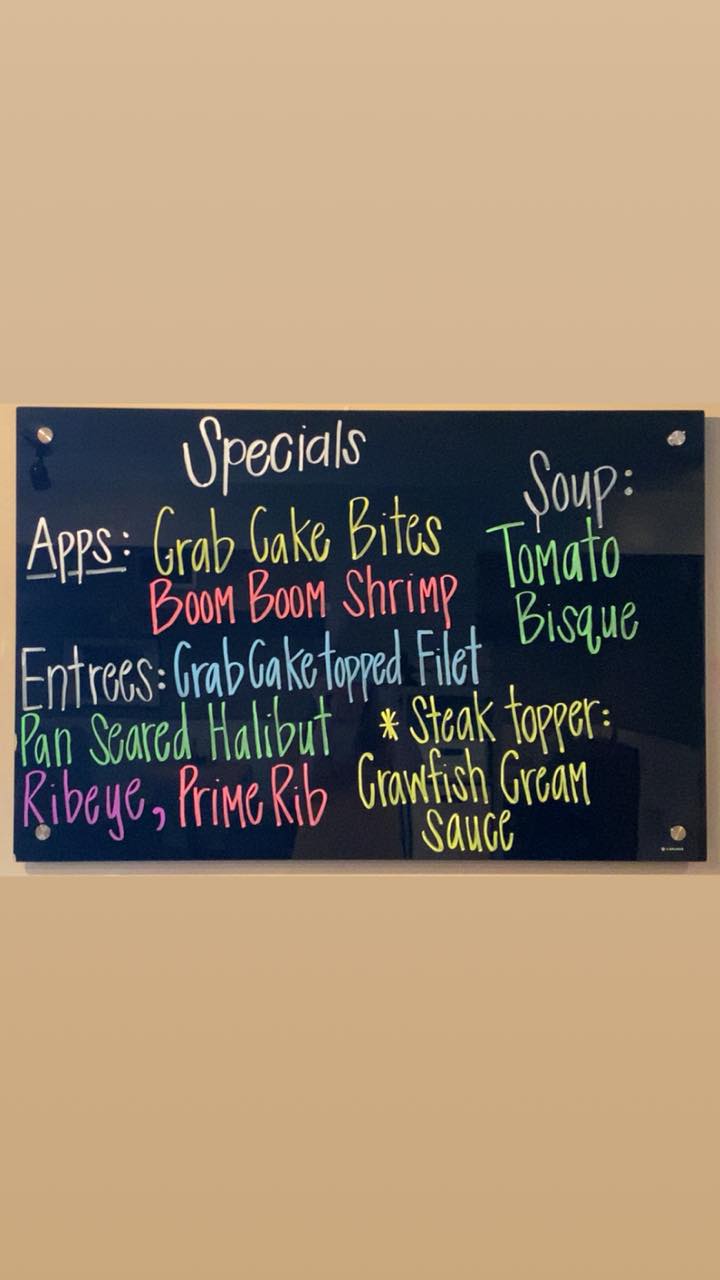 Specials
Apps: Crab Cake Bites
Boom Boom Shrimp
Soup:
Tomato
Bisque
Entrees: Crab Cake topped Filet
Pan Seared Halibut
Ribeye, Prime Rib
* Steak topper:
Crawfish Cream
sauce